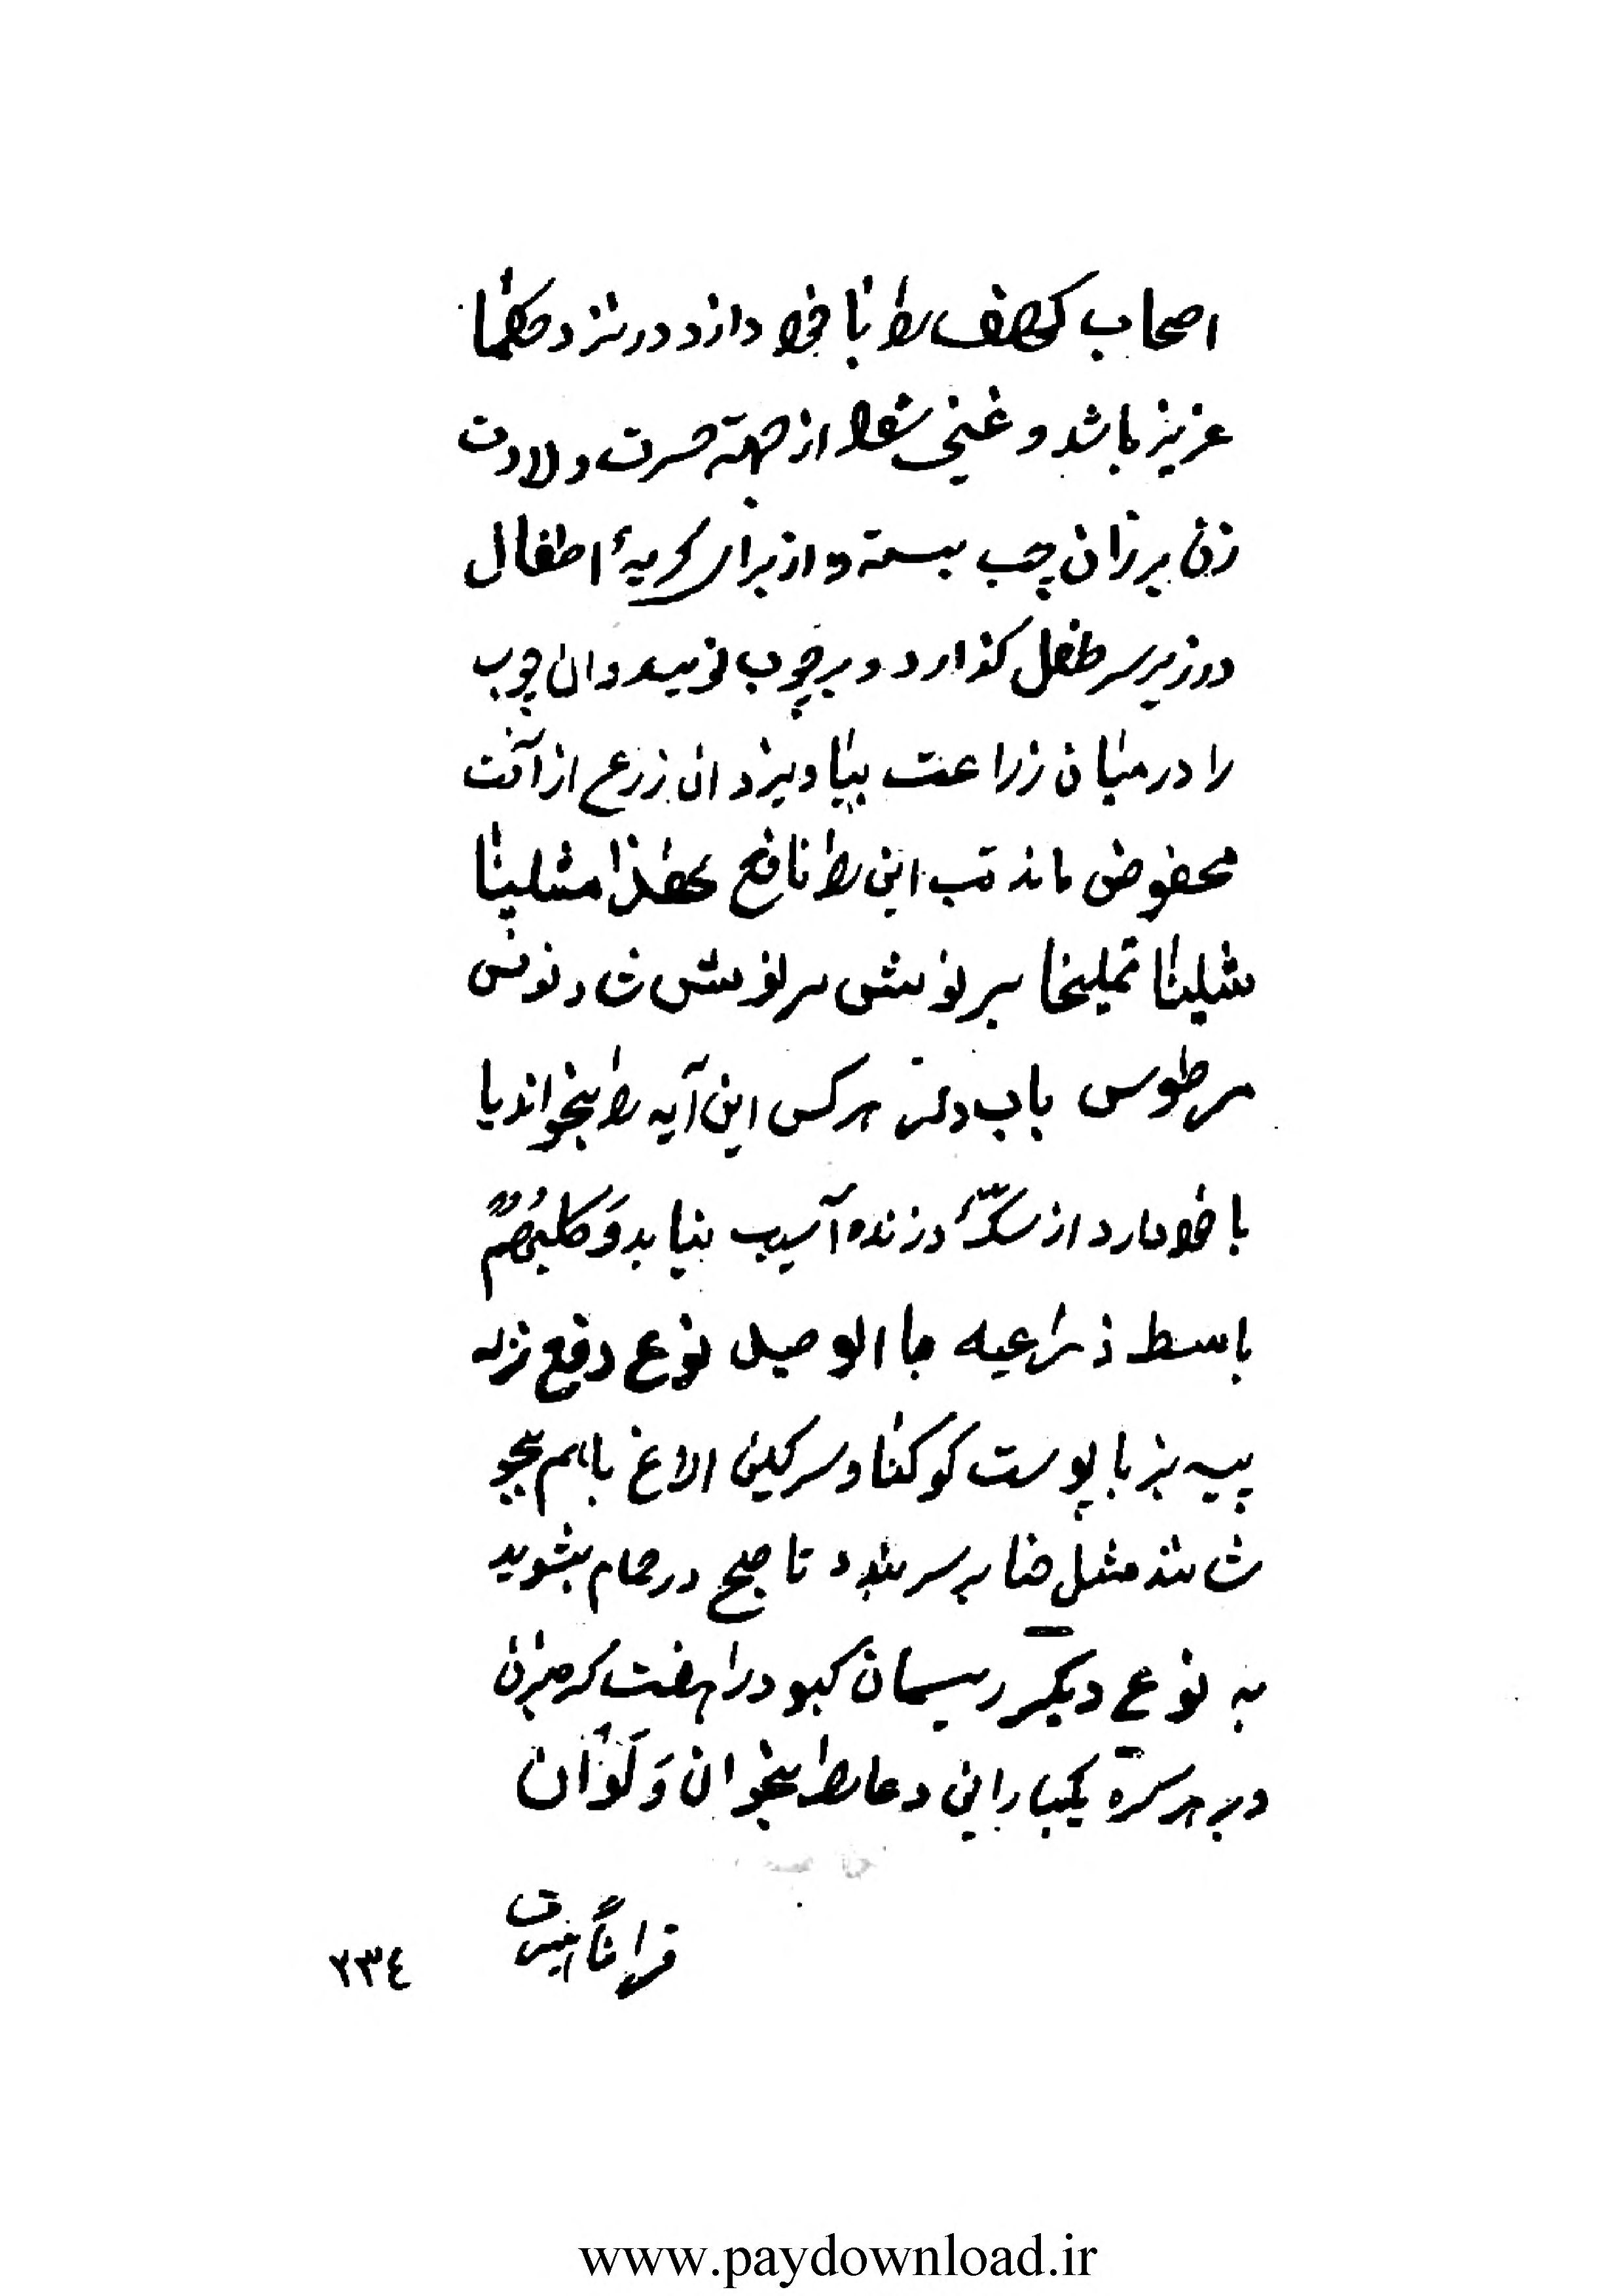 اصحاب کهف را با خود دارد در نزد حکما
عزیز باشد و غنی شود از جهة عسرت ولادت
زن بر ران چپ بسته و از برای گریهٔ اطفال
در زیر سر طفل گذارد و بر چوب نویسد و ان چوب
را در میان زراعت بیاویزد ان زرع از آفت
محفوض ماند تب این را نافع مثلینا
شلینا تملیخا برنوش شاد نونس
مرطوس باب هر کس این آیه را بخواند یا
با خود دارد از سگ درنده آسیب نیابد وَ کلبُهُم
باسط ذراعیه باالوصید نوع دفع نزله
پیه بز با پوست کوکنار و سرکین الاغ باهم بجو
شانند مثل حنا بر سر بندد تا صبح در حمام بشوید
به نوع دیگر ریسمان کبود را هفت گره بزن
و بر هر گره یکبار این دعا را بخوان وَ لَو اَن
قراناً سیرت
۲۳٤
www.paydownload.ir